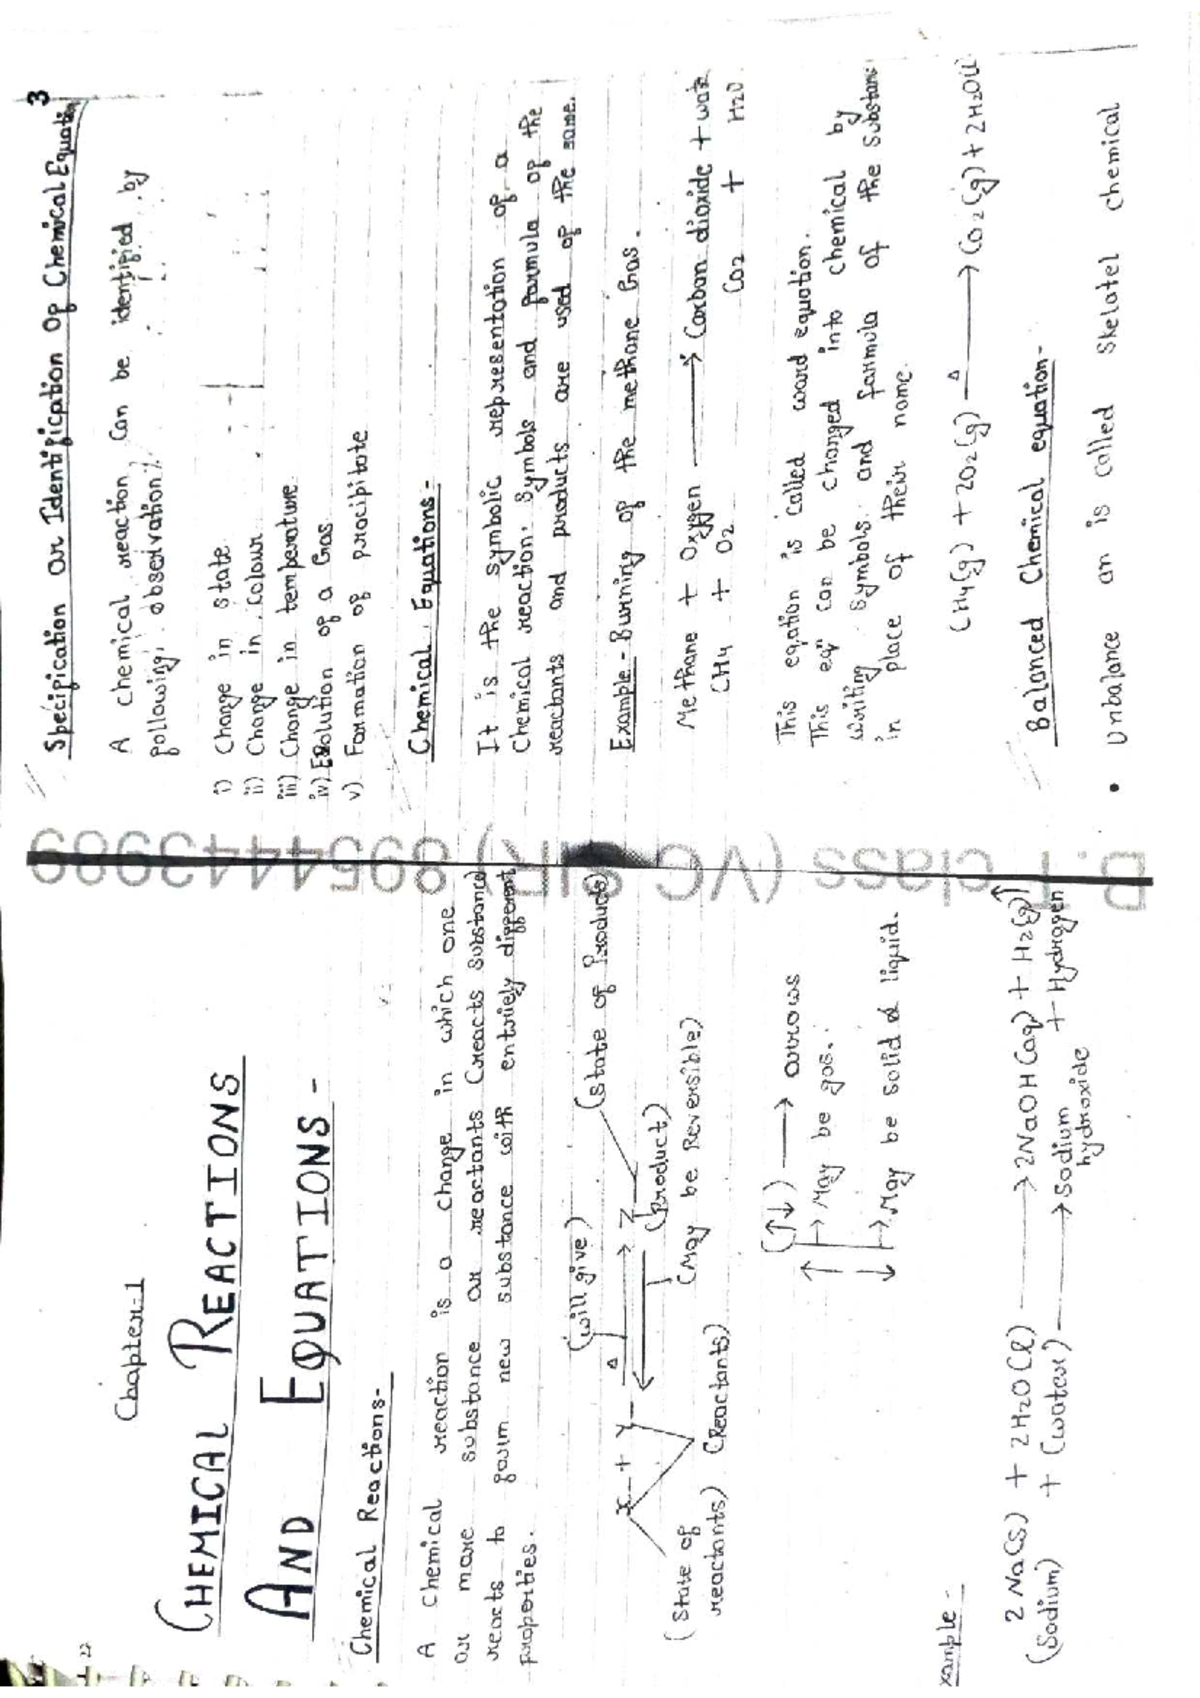 Chapter:1
CHEMICAL REACTIONS
AND EQUATIONS -
Chemical Reactions-
A chemical reaction is a change in which one
or more substance or reactants (reacts substance)
reacts to form new substance with entriely different
properties.
(will give)
(State of Products)
x + y Δ Z
(Product)
(State of
reactants) (Reactants) (May be Reversible)
(↑↓) ⟶ arrows
↑ → May be gas.
↓ → May be solid & liquid.
xample -
2Na(s) + 2H2O(l) ⟶ 2NaOH(aq) + H2(g)↑
(Sodium) + (water) ⟶ Sodium + Hydrogen
hydroxide
B.T class (VC SIR) 8954443989
3
Specification or Identification Of Chemical Equation
A chemical reaction can be identified by
following observation
i) Change in state
ii) Change in colour
iii) Change in temperature
iv) Evolution of a Gas
v) Formation of precipitate
Chemical Equations -
It is the symbolic representation of a
chemical reaction. Symbols and formula of the
reactants and products are used of the same.
Example - Burning of the methane Gas.
Methane + Oxygen ⟶ Carbon dioxide + wate
CH4 + O2 CO2 + H2O
This eqation is called word equation.
This eqⁿ can be changed into chemical by
writing symbols and formula of the substanc
in place of their name.
CH4(g) + 2O2(g) Δ⟶ CO2(g) + 2H2O(l
Balanced Chemical equation -
• Unbalance an is called Skelatel chemical